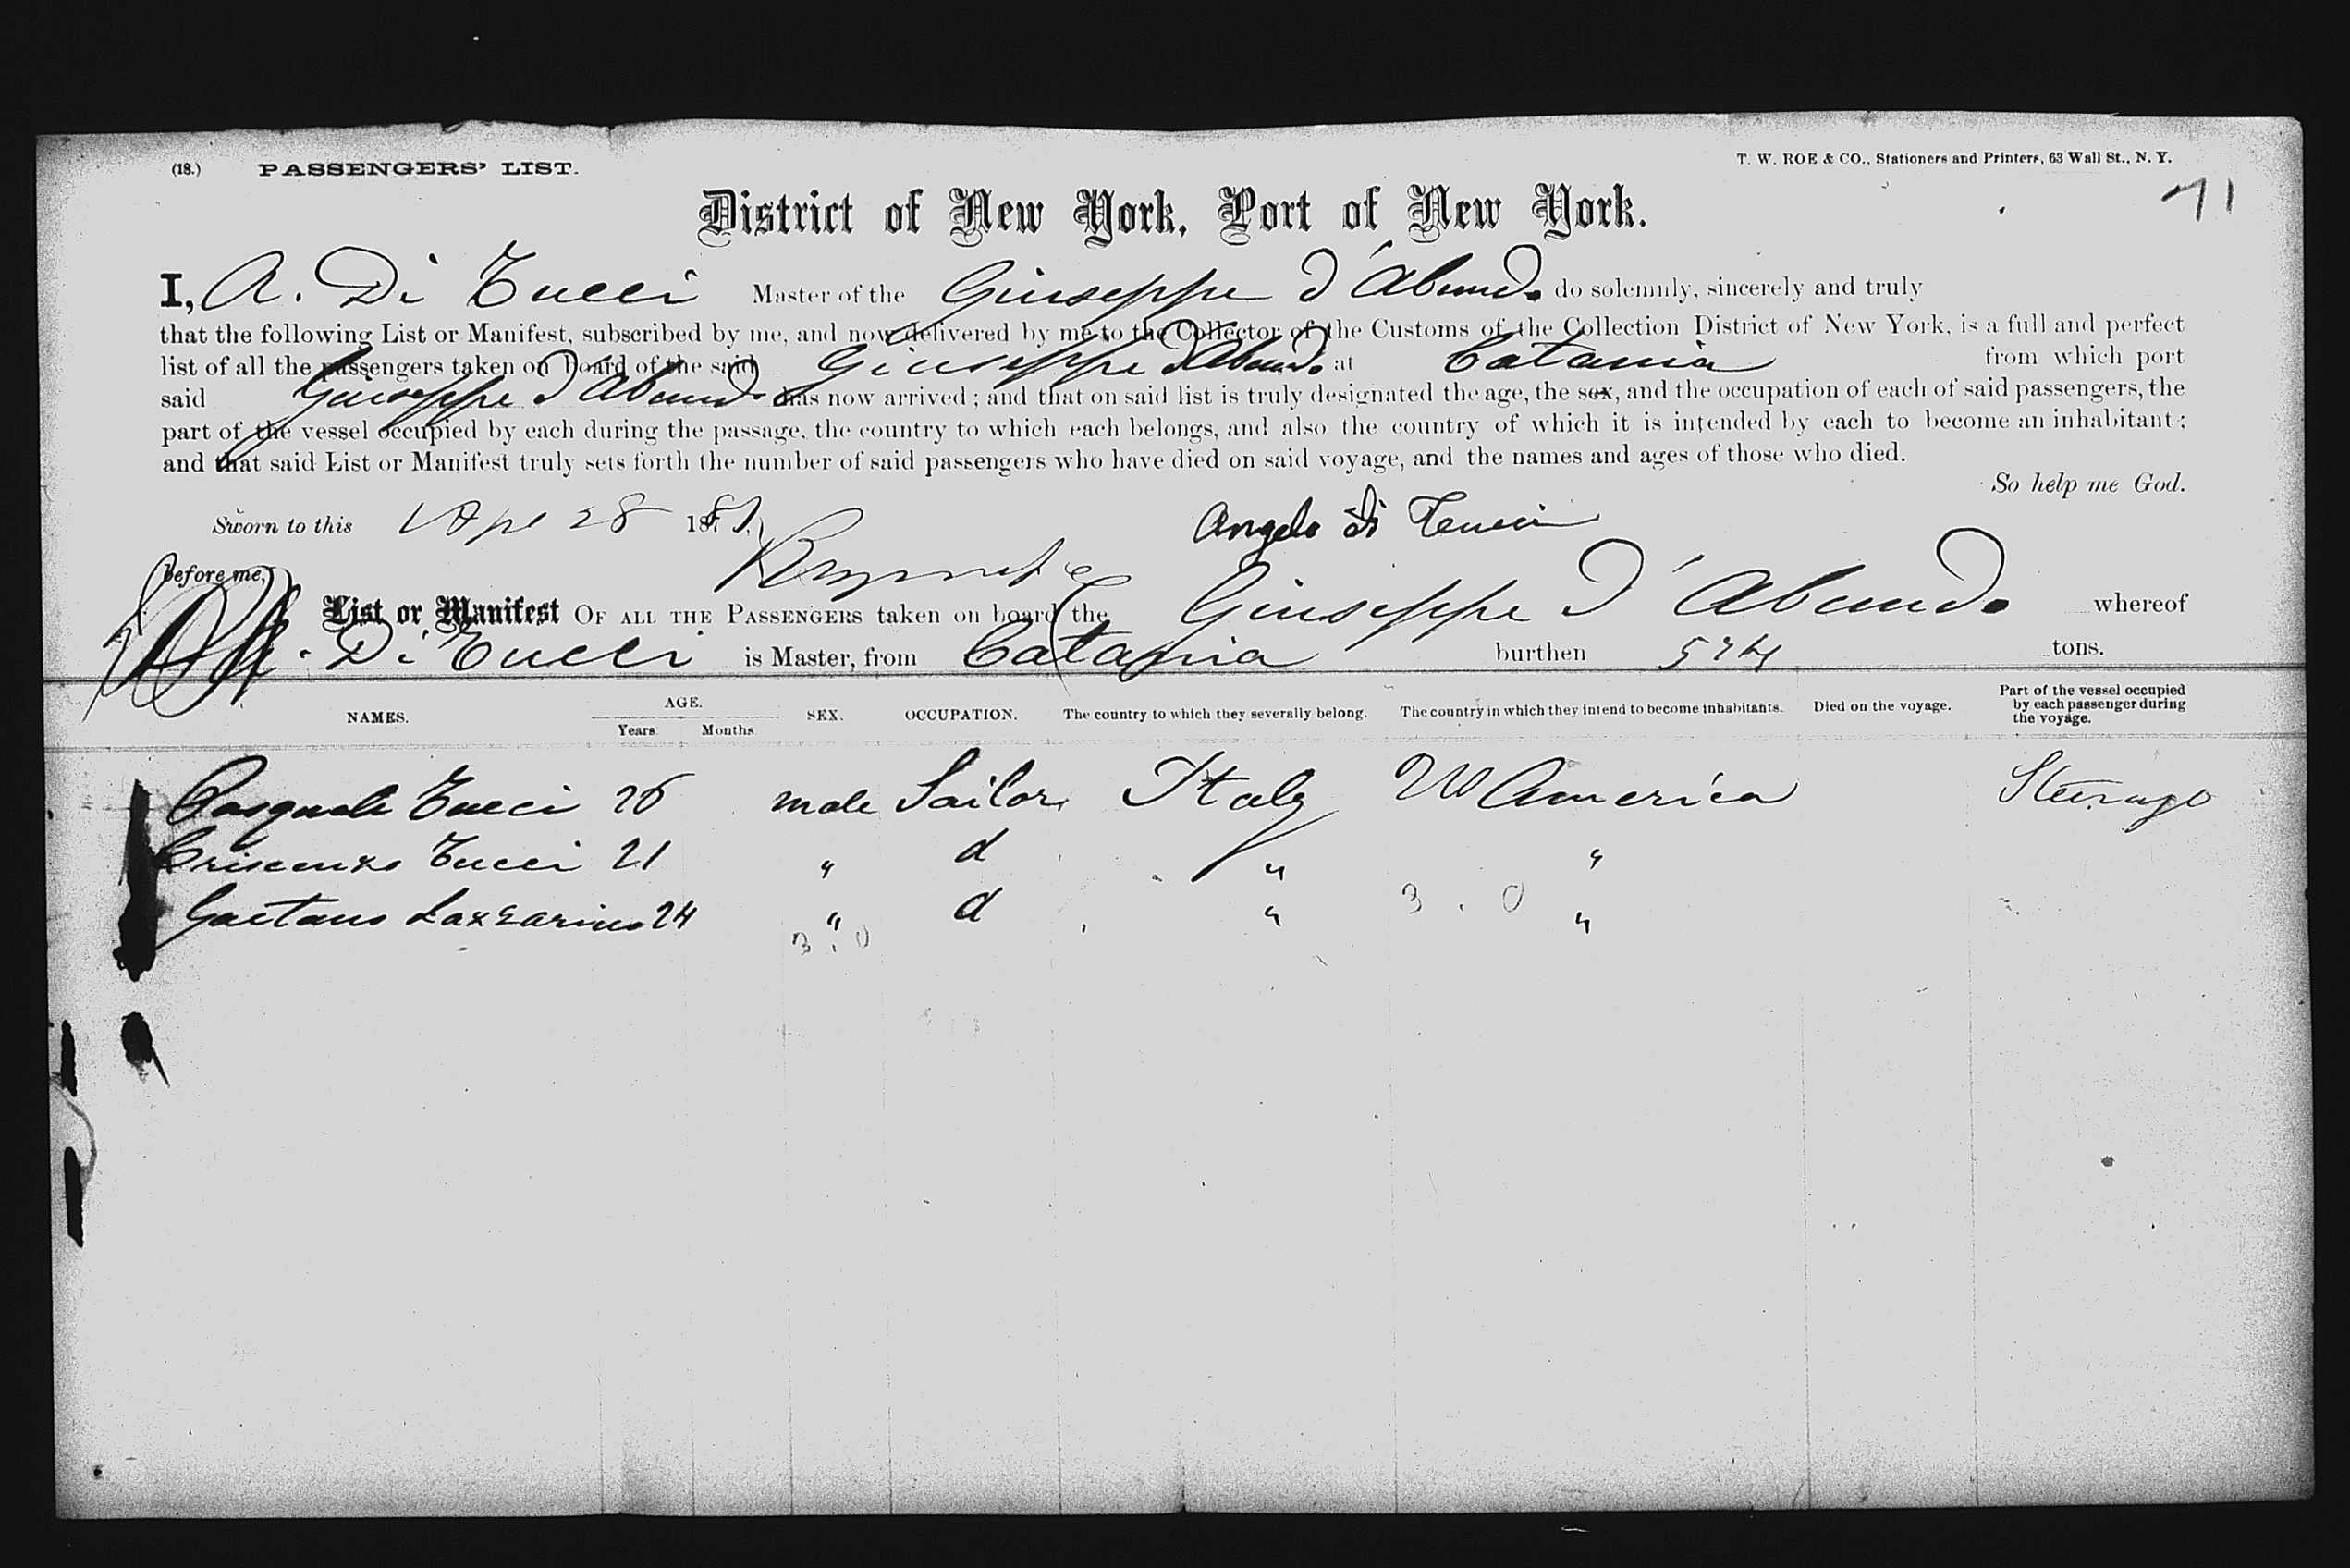 (18.) PASSENGERS' LIST. T. W. ROE & CO., Stationers and Printers, 63 Wall St., N. Y.
71
District of New York, Port of New York.
I, A. Di Tucci Master of the Giuseppe d'Abundo do solemnly, sincerely and truly
that the following List or Manifest, subscribed by me, and now delivered by me to the Collector of the Customs of the Collection District of New York, is a full and perfect
list of all the passengers taken on board of the said Giuseppe d'Abundo at Catania from which port
said Giuseppe d'Abundo has now arrived; and that on said list is truly designated the age, the sex, and the occupation of each of said passengers, the
part of the vessel occupied by each during the passage, the country to which each belongs, and also the country of which it is intended by each to become an inhabitant;
and that said List or Manifest truly sets forth the number of said passengers who have died on said voyage, and the names and ages of those who died.
So help me God.
Sworn to this Apl 28 1881. Angelo di Tucci
Before me,
List or Manifest OF ALL THE PASSENGERS taken on board the Giuseppe d'Abundo whereof
A. Di Tucci is Master, from Catania burthen 574 tons.
NAMES. AGE. Years. Months. SEX. OCCUPATION. The country to which they severally belong. The country in which they intend to become inhabitants. Died on the voyage. Part of the vessel occupied by each passenger during the voyage.
Pasquale Tucci 26 male Sailor Italy America Steerage
Criscenzo Tucci 21 " d " "
Gaetano Lazzarino 24 " d " "
3.0 3.0